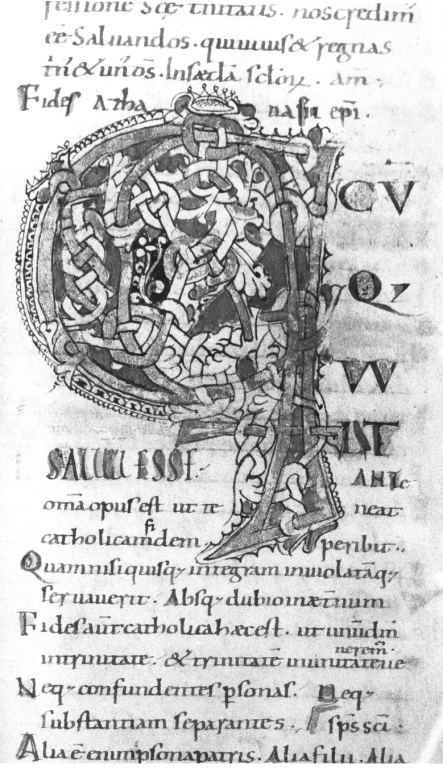 fessione Scē trinitatis. nos credim̄
eē Saluandos. qui uiuis & regnas
trin̄ & un̄ ds̄. In sæcl̄a sclor̄. am̄
Fides Athanasii ep̄i.
Q CV
Q
VV
LST
SALUUS ESSE. ANTE
om̄a opus est ut teneat
catholicam fidem
Quam nisi quisq; integram inuiolatāq;
seruauerit. Absq; dubio in æt̄num peribit.
Fides aūt catholica hæc est. ut unūdm̄
in trinitate. & trinitatē in unitate ueneremr̄.
Neq; confundentes psonas. Neq;
substantiam separantes. sps̄ sci.
Alia ē enim psona patris. Alia filii. Alia